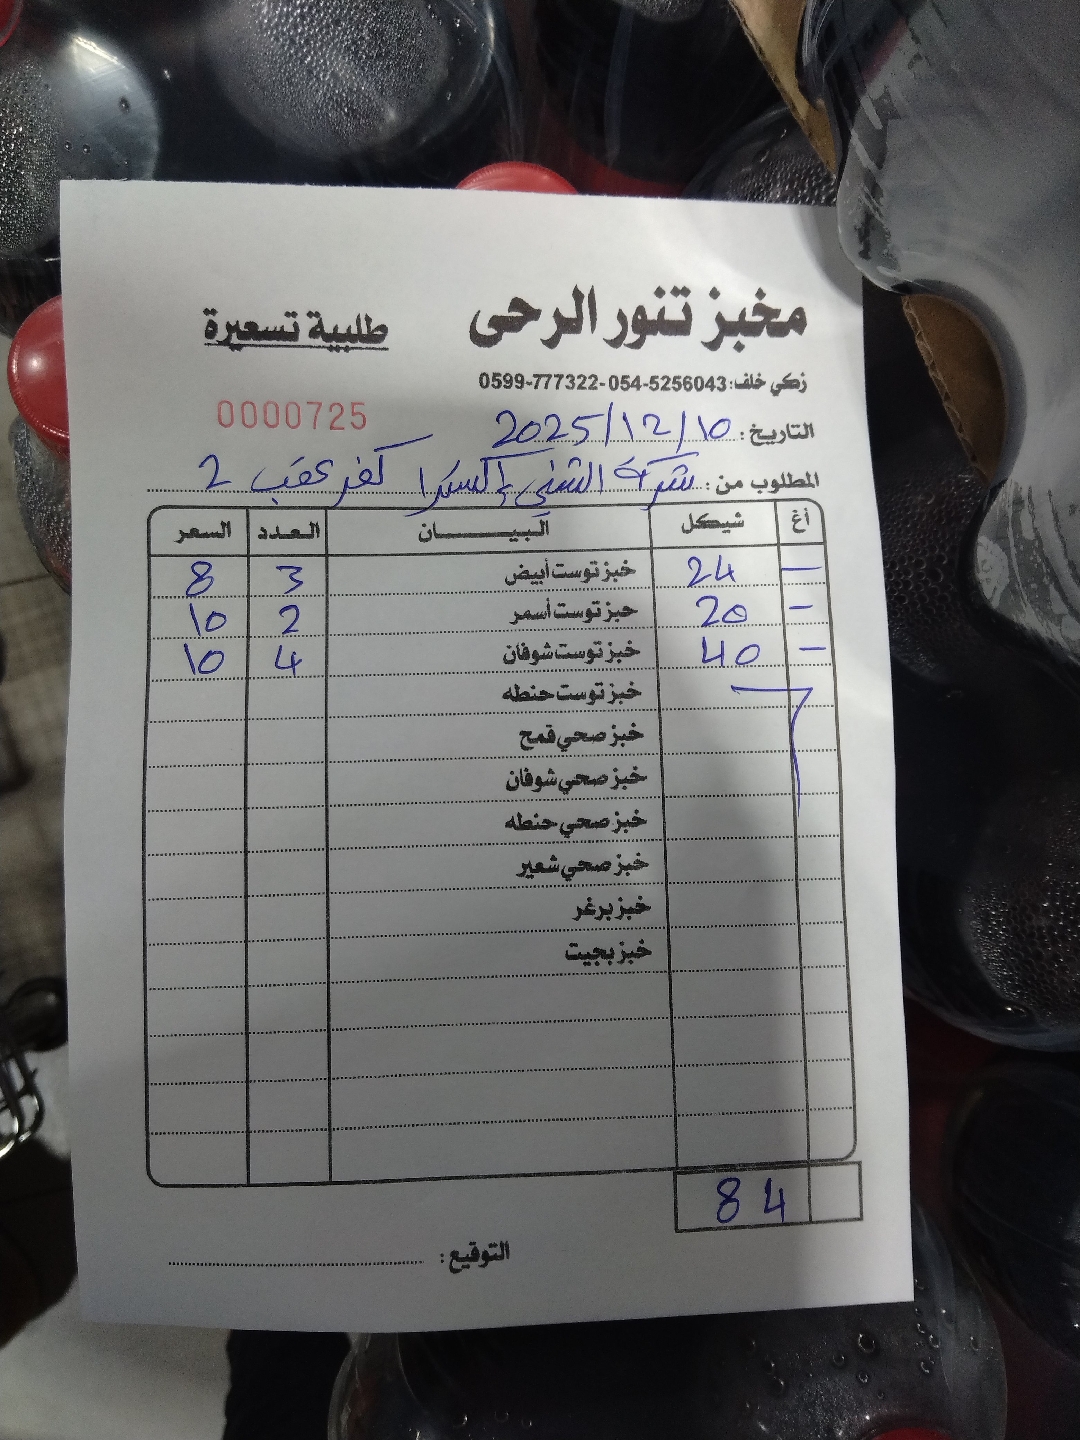 مخبز تنور الرحى
طلبية تسعيرة
زكي خلف: 054-5256043-0599-777322
0000725
التاريخ: 2025/12/10
المطلوب من: شركة الشني إكسترا كفر عقب 2
أغ شيكل البيــــــان العدد السعر
— 24 خبز توست أبيض 3 8
— 20 حبز توست أسمر 2 10
— 40 خبز توست شوفان 4 10
خبز توست حنطه
خبز صحي قمح
خبز صحي شوفان
خبز صحي حنطه
خبز صحي شعير
خبز برغر
خبز بجيت
84
التوقيع: